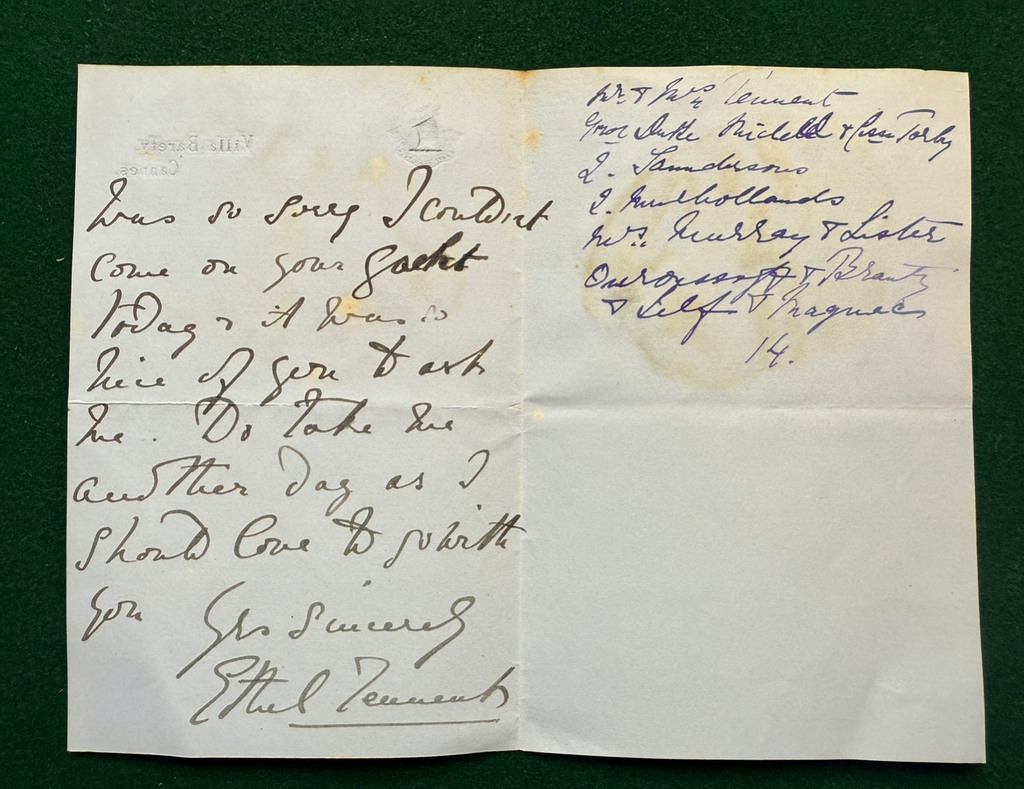 Villa Barety,
Cannes.
was so sorry I couldn't
come on your yacht
today - it was so
nice of you to ask
me. Do take me
another day as I
should love to go with
you
Yrs sincerely
Ethel Tennent
Mr. & Mrs Tennent
Duke & Torby
2. Saundersons
2. Mulhollands
Mrs. Murray & Lister
&
& Self &
14.